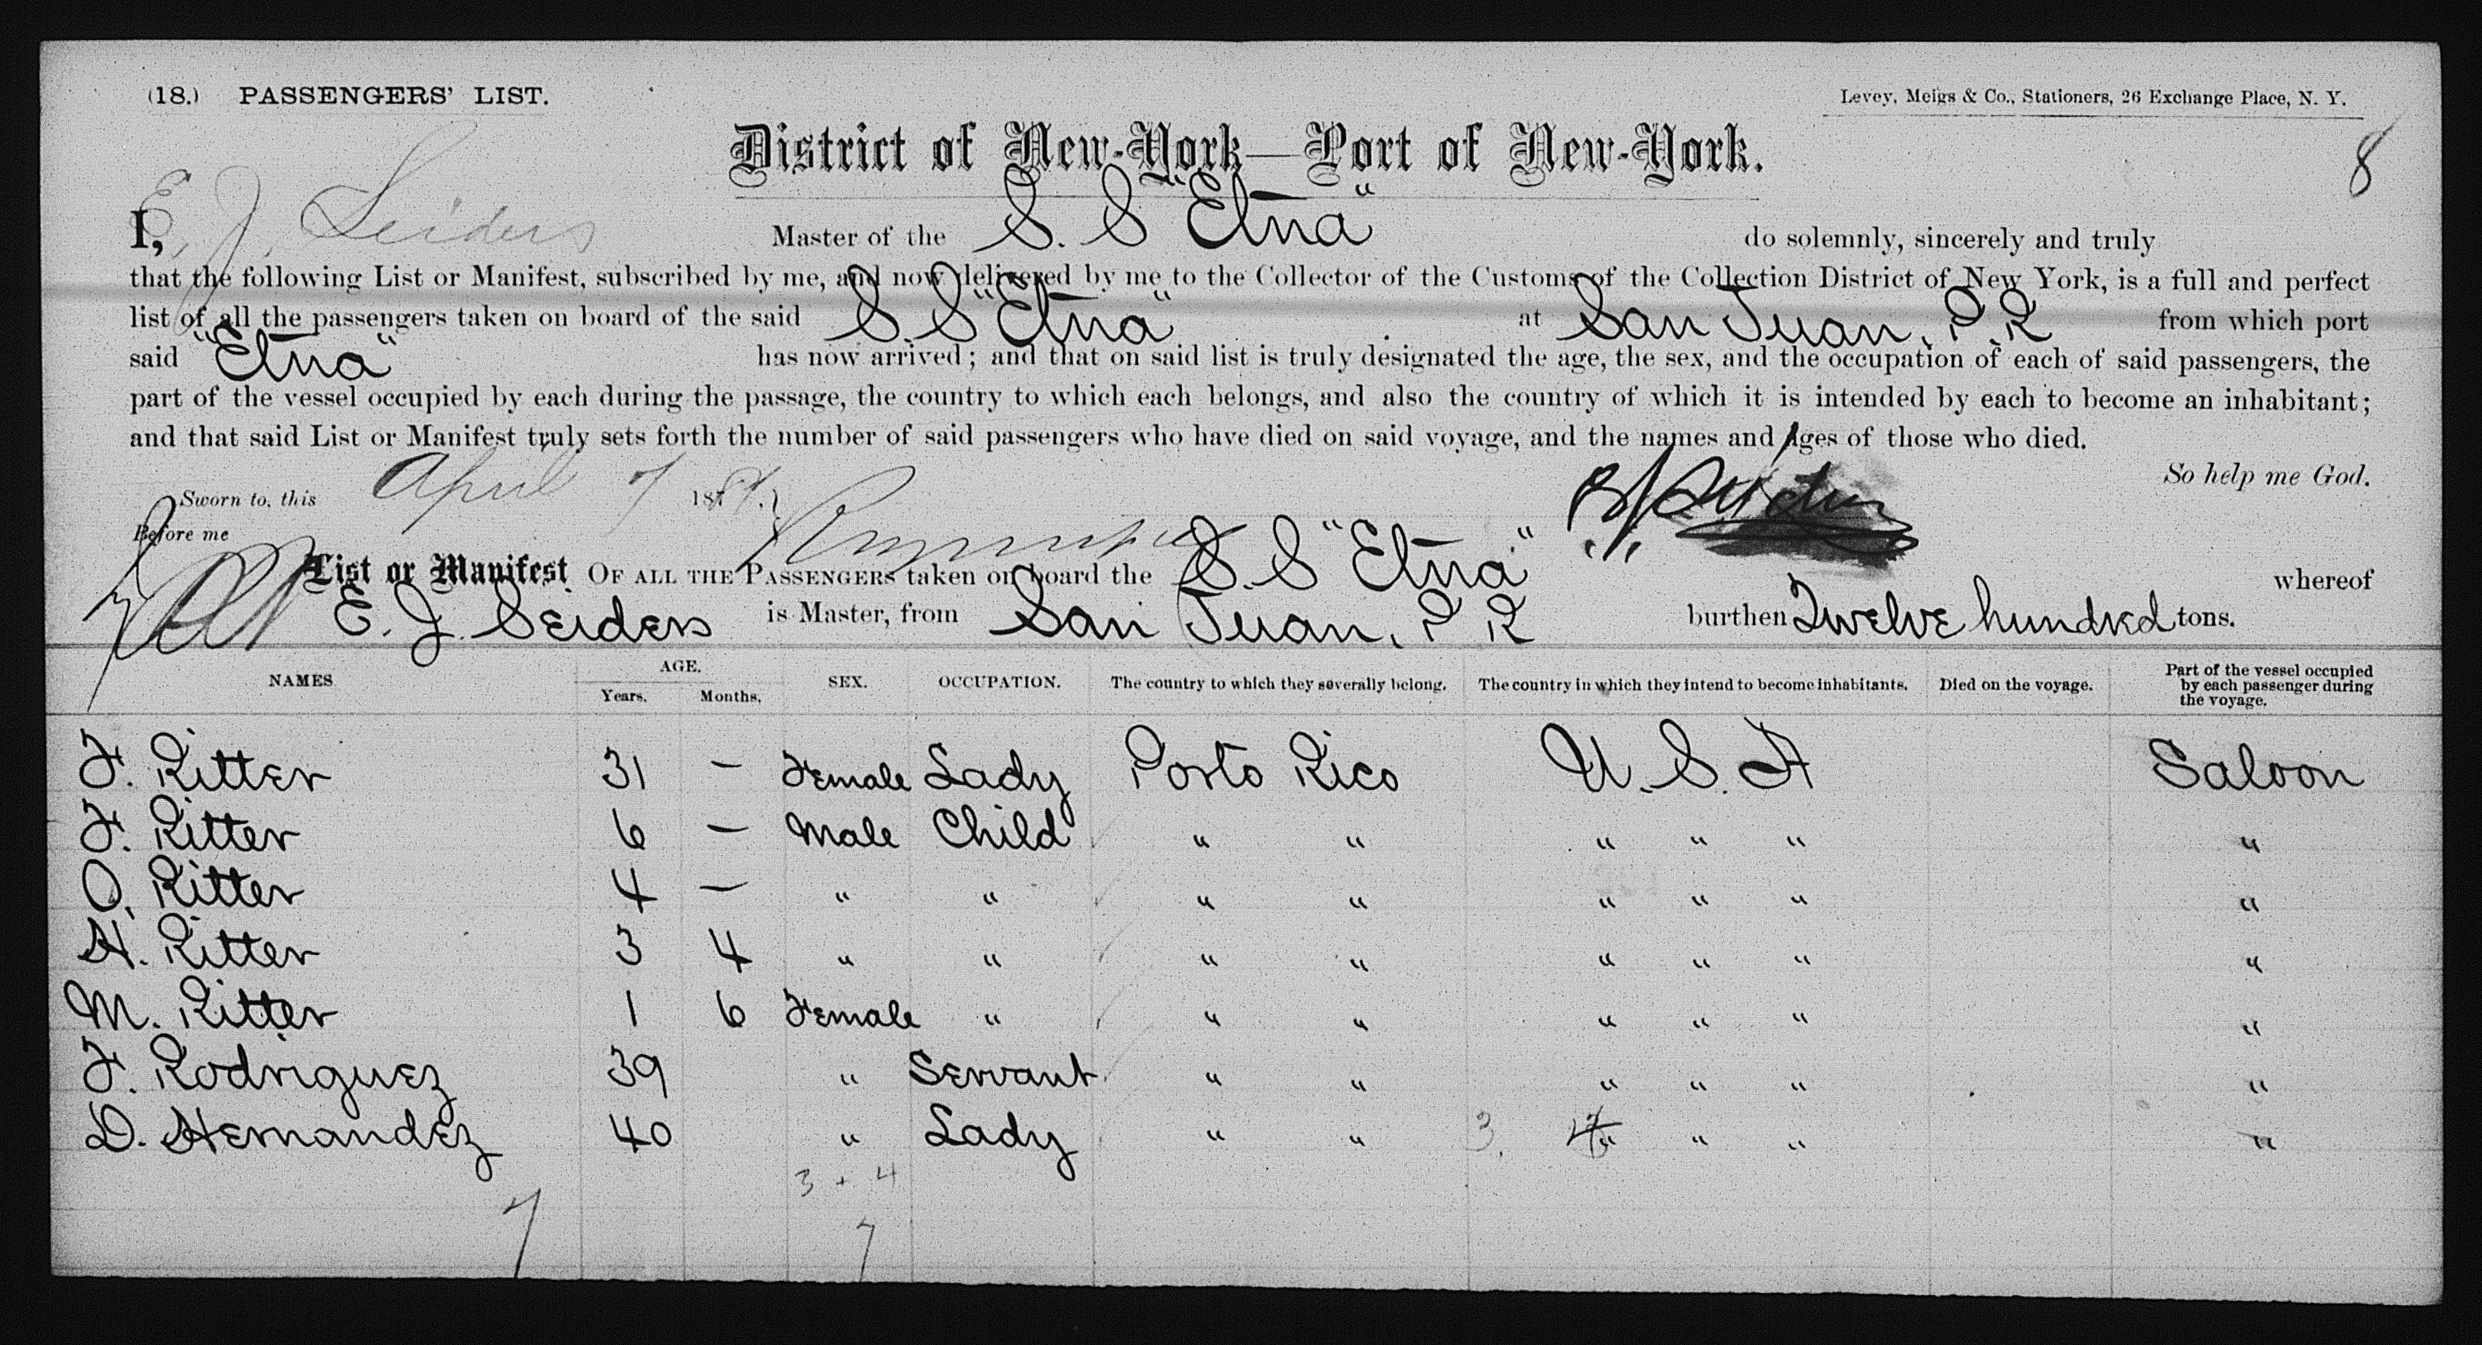 (18.) PASSENGERS' LIST.
Levey, Meigs & Co., Stationers, 26 Exchange Place, N. Y.
8
District of New-York—Port of New-York.
I, E. J. Seiders Master of the S. S "Etna" do solemnly, sincerely and truly
that the following List or Manifest, subscribed by me, and now delivered by me to the Collector of the Customs of the Collection District of New York, is a full and perfect
list of all the passengers taken on board of the said S. S "Etna" at San Juan, P. R from which port
said "Etna" has now arrived; and that on said list is truly designated the age, the sex, and the occupation of each of said passengers, the
part of the vessel occupied by each during the passage, the country to which each belongs, and also the country of which it is intended by each to become an inhabitant;
and that said List or Manifest truly sets forth the number of said passengers who have died on said voyage, and the names and Ages of those who died.
So help me God.
Sworn to, this April 7 18
E. J. Seiders
Before me
List or Manifest OF ALL THE PASSENGERS taken on board the S. S "Etna" whereof
E. J. Seiders is Master, from San Juan, P R burthen Twelve hundred tons.
NAMES AGE. Years. Months. SEX. OCCUPATION. The country to which they severally belong. The country in which they intend to become inhabitants. Died on the voyage. Part of the vessel occupied by each passenger during the voyage.
F. Ritter 31 — Female Lady Porto Rico U. S. A Saloon
F. Ritter 6 — Male Child " " " " " "
O. Ritter 4 — " " " " " " " "
H. Ritter 3 4 " " " " " " " "
M. Ritter 1 6 Female " " " " " " "
F. Rodriguez 39 " Servant " " " " " "
D. Hernandez 40 " Lady " " 3. " " " "
3 + 4
7 7